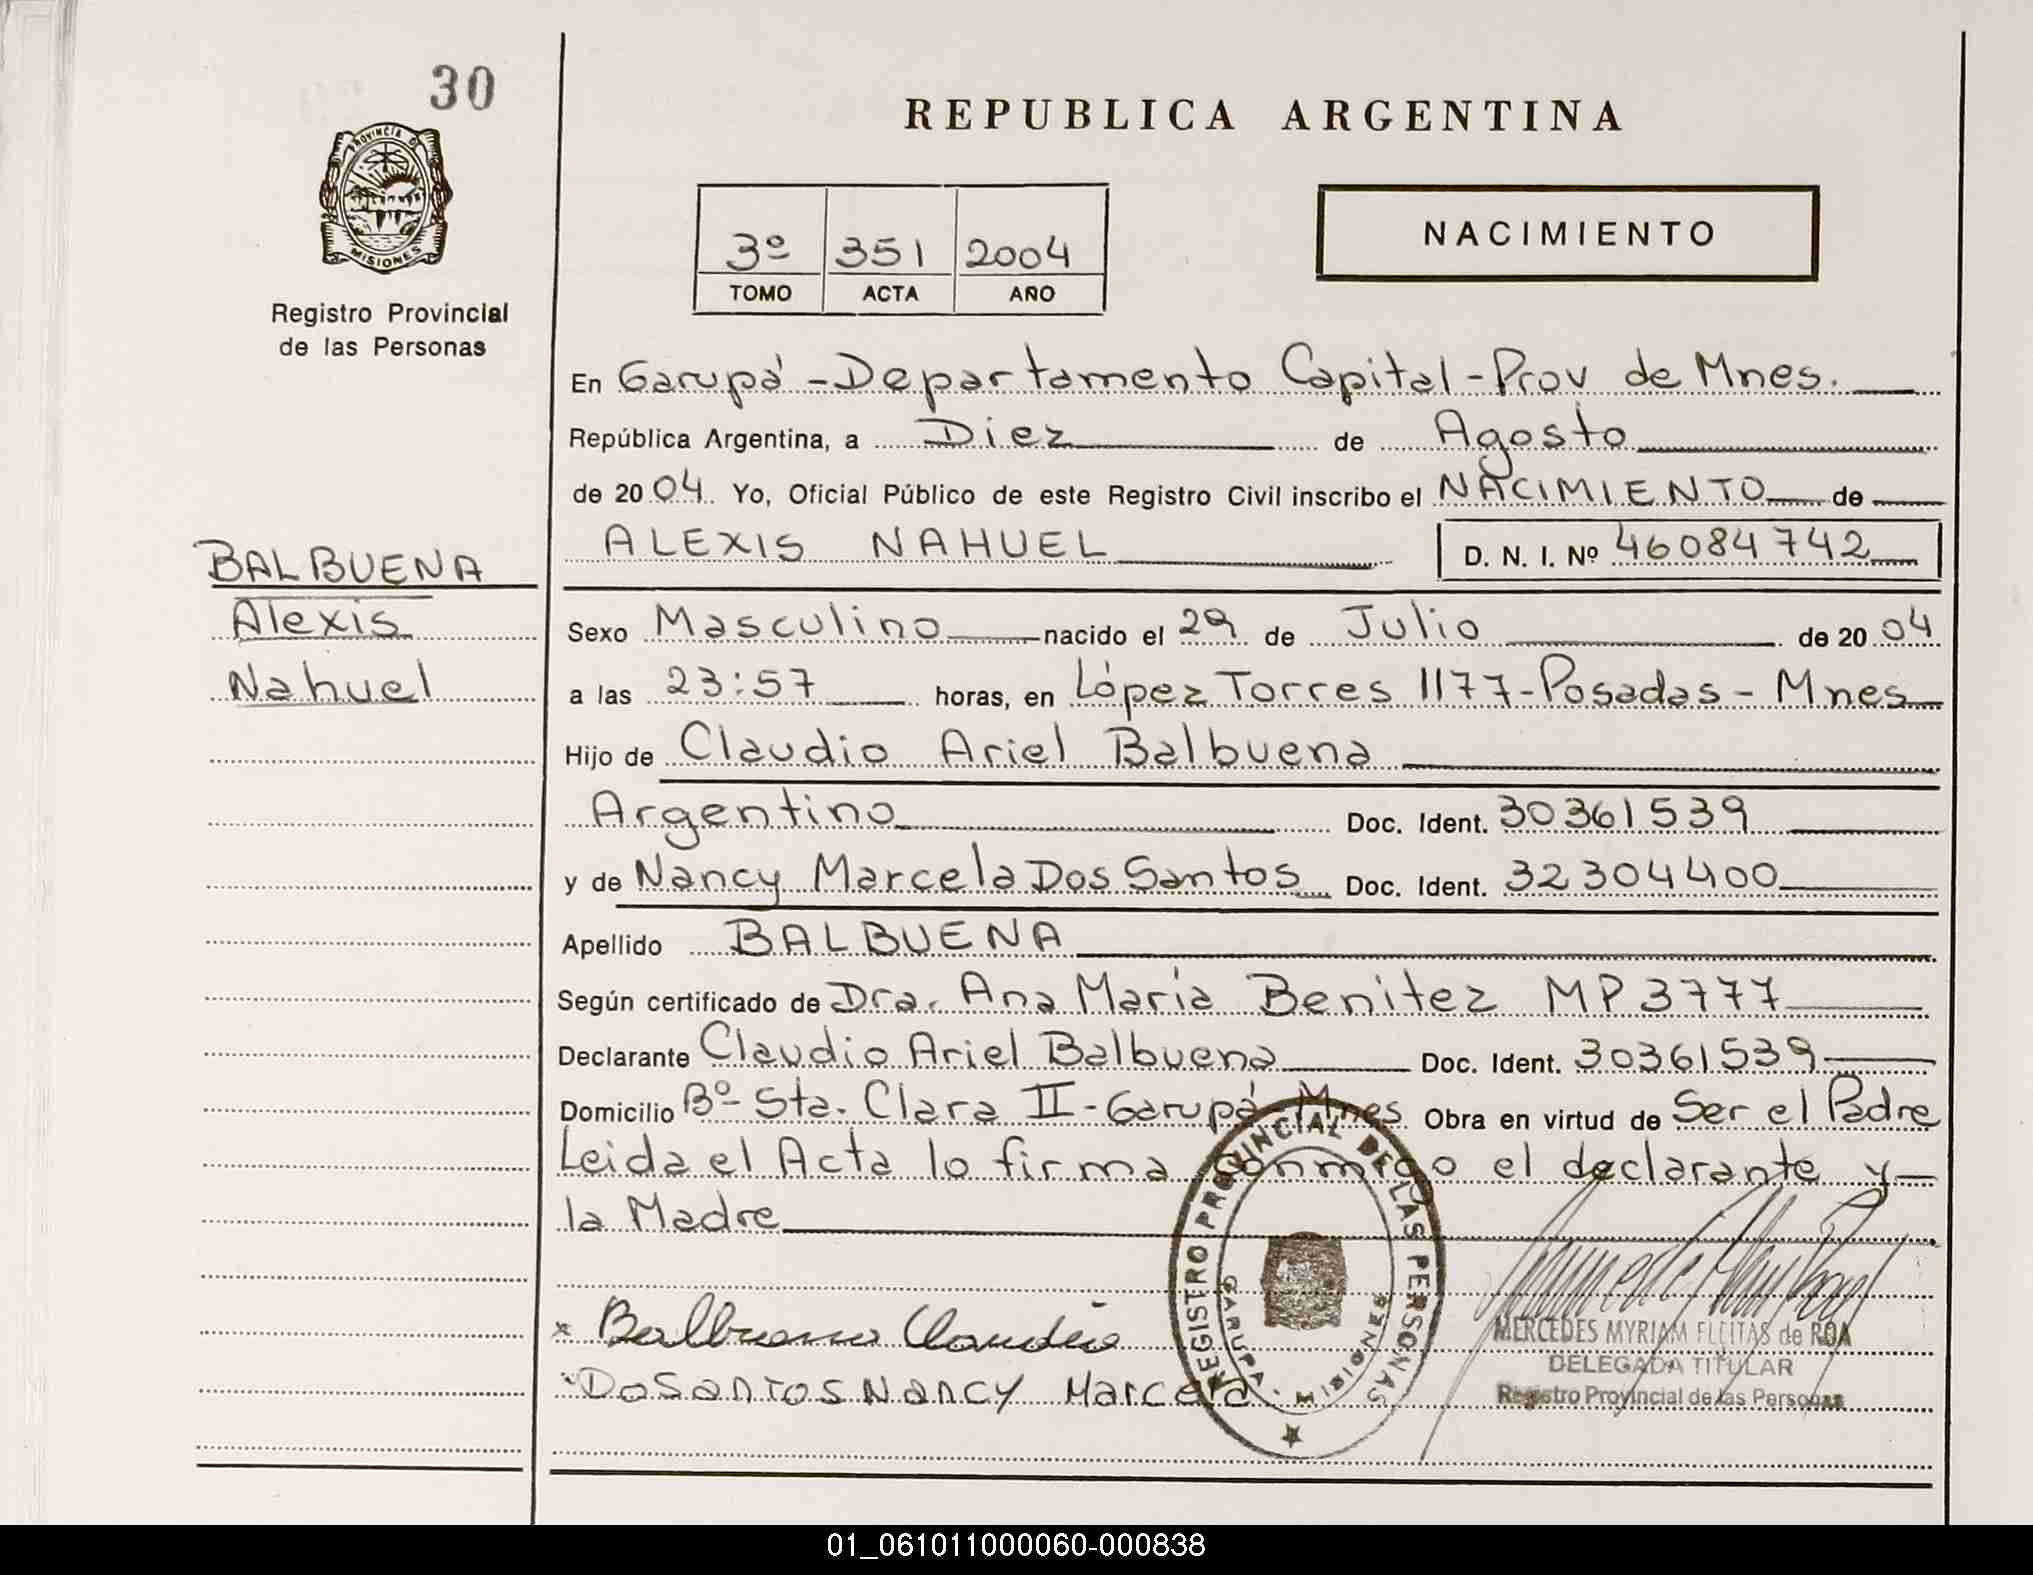 30
PROVINCIA DE
MISIONES
Registro Provincial
de las Personas
BALBUENA
Alexis
Nahuel
REPUBLICA ARGENTINA
3º 351 2004
TOMO ACTA AÑO
NACIMIENTO
En Garupá - Departamento Capital - Prov de Mnes.
República Argentina, a Diez de Agosto
de 2004. Yo, Oficial Público de este Registro Civil inscribo el NACIMIENTO de
ALEXIS NAHUEL D. N. I. Nº 46084742
Sexo Masculino nacido el 29 de Julio de 2004
a las 23:57 horas, en López Torres 1177 - Posadas - Mnes
Hijo de Claudio Ariel Balbuena
Argentino Doc. Ident. 30361539
y de Nancy Marcela Dos Santos Doc. Ident. 32304400
Apellido BALBUENA
Según certificado de Dra. Ana María Benitez MP 3777
Declarante Claudio Ariel Balbuena Doc. Ident. 30361539
Domicilio Bº Sta. Clara II - Garupá - Mnes Obra en virtud de Ser el Padre
Leida el Acta lo firma conmigo el declarante y
la Madre
x Balbuena Claudio
DoSantos Nancy Marcela
REGISTRO PROVINCIAL DE LAS PERSONAS
GARUPA
MERCEDES MYRIAM FLEITAS de ROA
DELEGADA TITULAR
Registro Provincial de las Personas
01_061011000060-000838